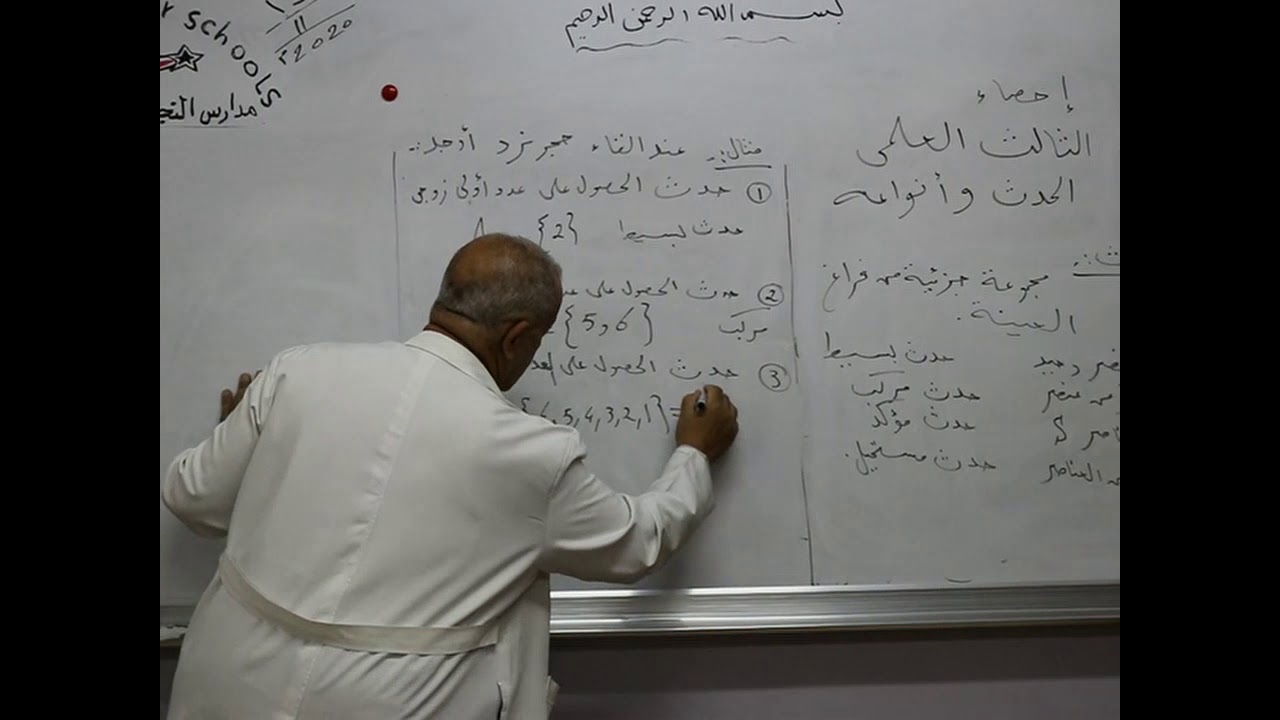 بسم الله الرحمن الرحيم
schools
11
2020
مدارس
إحصاء
الثالث العلمي
الحدث وأنواعه
مجموعة جزئية من فراغ
العينة.
حدث بسيط
حدث مركب
من عنصر
حدث مؤكد
حدث مستحيل.
العناصر
مثال:. عند القاء حجر نرد أوجد:.
① حدث الحصول على عدد أولي زوجي
حدث بسيط {2} A
② حدث الحصول على
مركب {5 و 6}
③ حدث الحصول على
= {1,2,3,4,5,6}